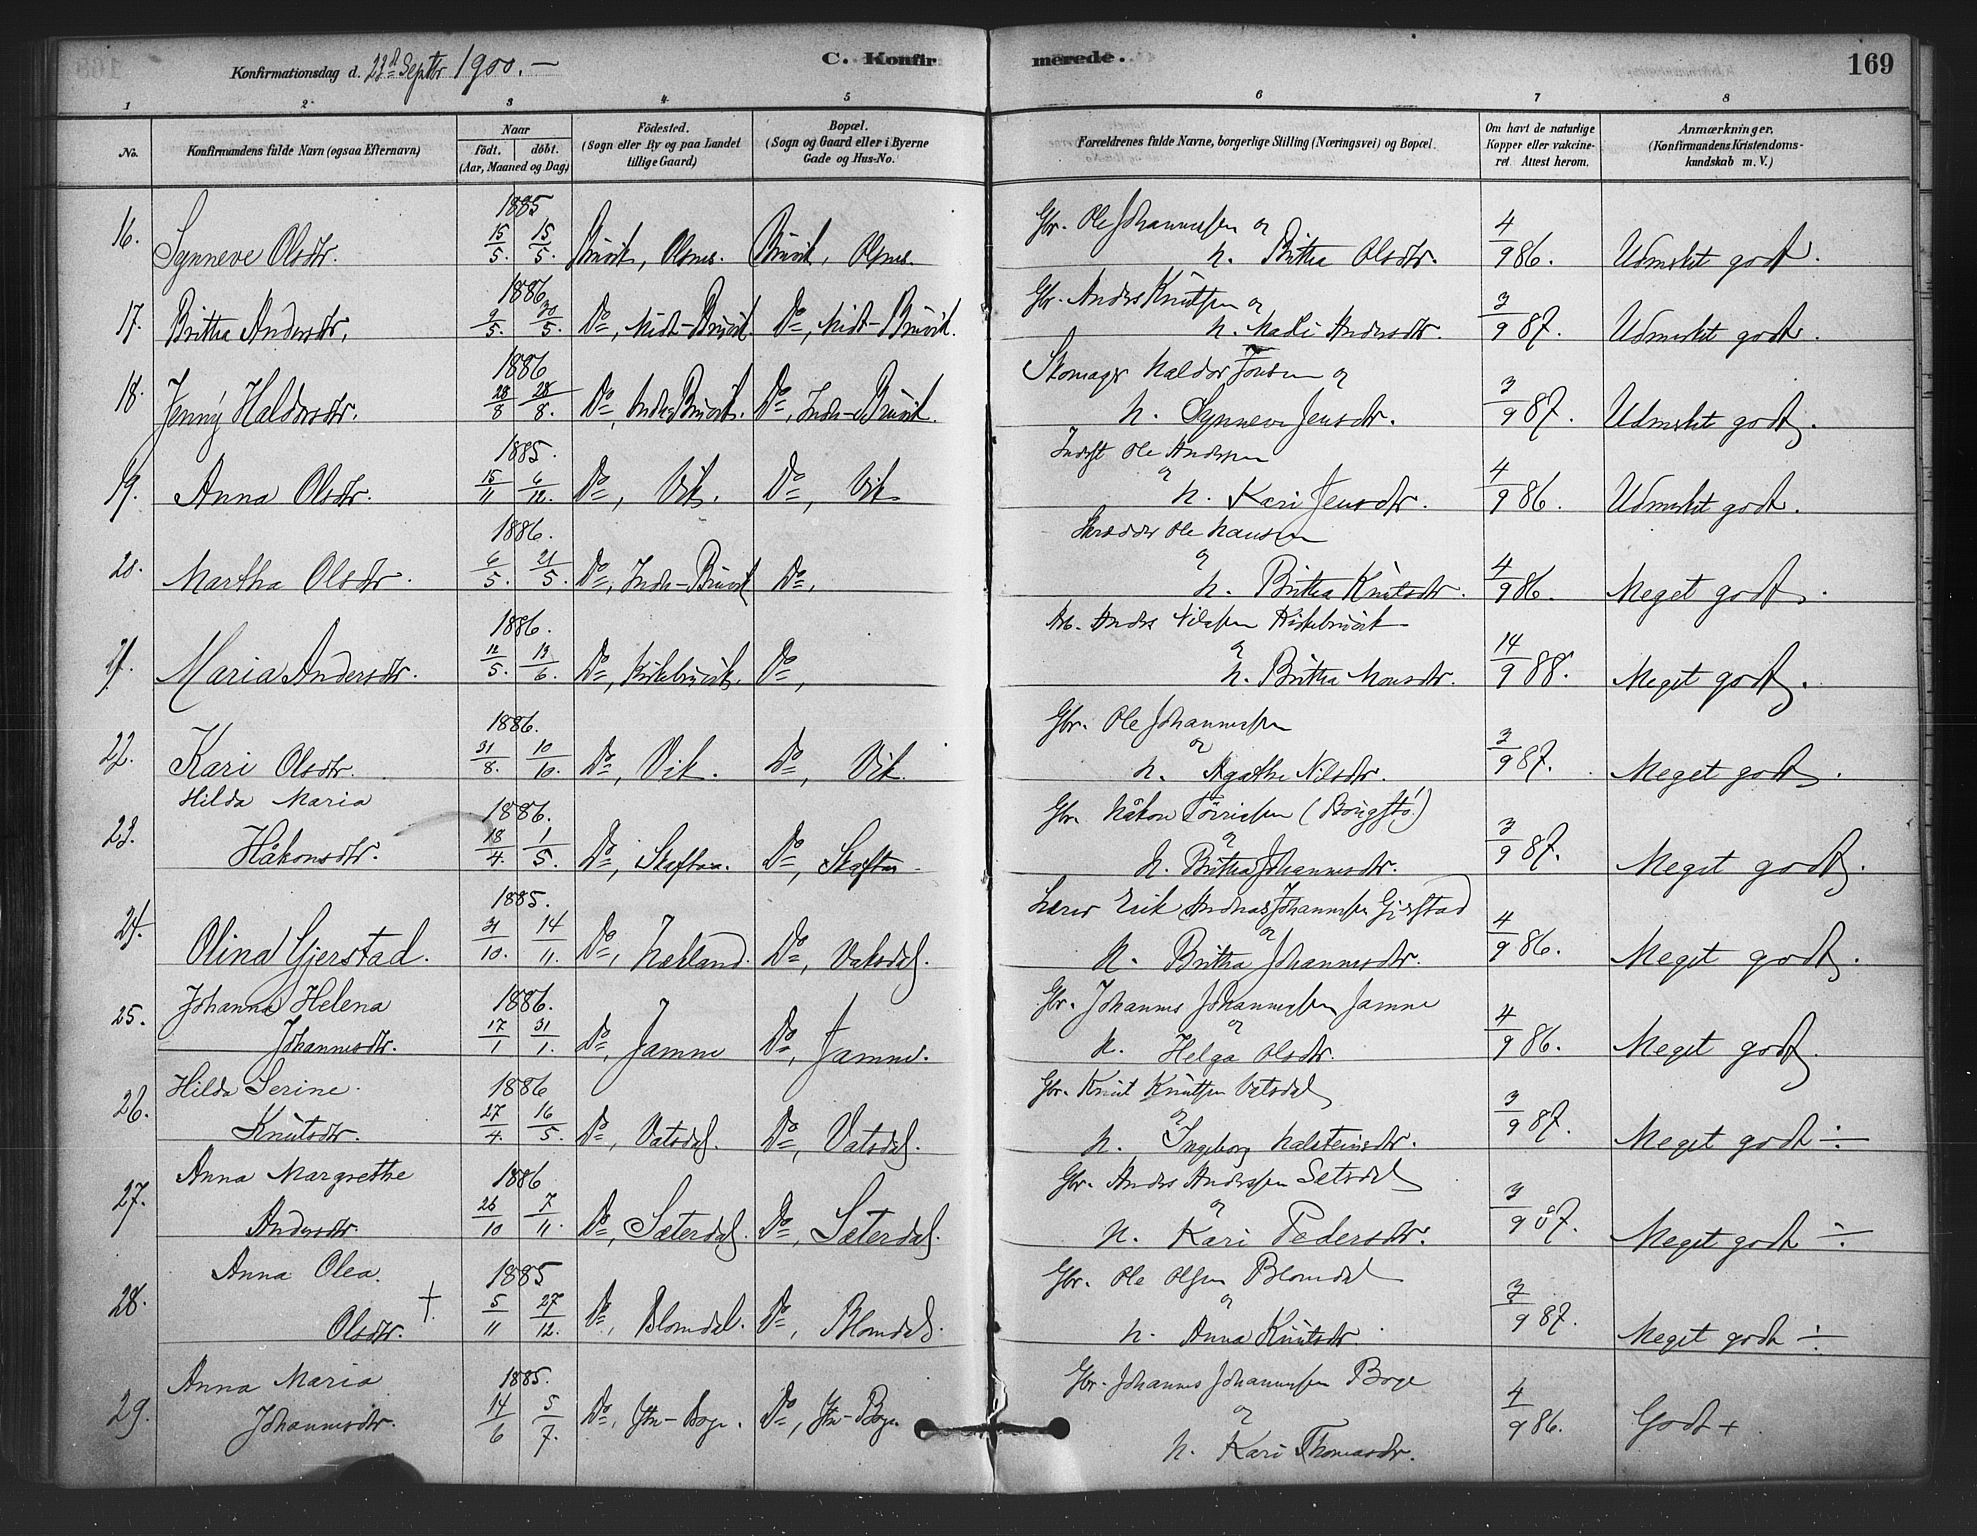 Konfirmationsdag d. 23d Septbr 1900. —
C. Konfirmerede.
169
1 2 3 4 5 6 7 8
No.
Konfirmandens fulde Navn (ogsaa Efternavn)
Naar født. døbt. (Aar, Maaned og Dag)
Födested. (Sogn eller By og paa Landet tillige Gaard)
Bopæl. (Sogn og Gaard eller i Byerne Gade og Hus-No.
Forældrenes fulde Navne, borgerlige Stilling (Næringsvei) og Bopæl.
Om havt de naturlige Kopper eller vakcineret. Attest herom.
Anmærkninger, (Konfirmandens Kristendomskundskab m. V.)
16. Synneve Olsdtr. 1885 15/5. 15/5. Bruvik, Olsnes. Bruvik, Olsnes. Gbr. Ole Johannessen og
h. Brita Olsdtr. 4/9 86. Udmerket godt.
17. Britha Andersdtr. 1886 9/5. 30/5. Do, Midt-Bruvik Do, Midt-Bruvik. Gbr. Anders Knutsen og
h. Mari Andersdtr. 3/9 87. Udmerket godt.
18. Jenny Haldorsdtr. 1886 28/8 28/8. Do, Indre Bruvik. Do, Indre-Bruvik. Skomager Haldor Jonsen og
h. Synneve Jensdtr. 3/9 87. Udmerket godt.
19. Anna Olsdtr. 1885. 15/11 6/12. Do, Vik. Do, Vik. Inderst Ole Andersen
og
h. Kari Jensdtr. 4/9 86. Udmerket godt.
20. Martha Olsdtr. 1886. 6/5. 21/5. Do, Indre-Bruvik Do, Skrædder Ole Hansen
og
h. Britha Knutsdtr. 4/9 86. Meget godt.
21. Maria Andersdtr. 1886. 12/5. 13/6. Do, Kirkebruvik. Do, Arb. Anders Nilssen Kirkebruvik
og
h. Britha Monsdtr. 14/9 88. Meget godt.
22. Kari Olsdtr. 1886. 31/8. 10/10. Do, Vik. Do, Vik. Gbr. Ole Johannessen
og
h. Agathe Nilsdtr. 3/9 87. Meget godt.
23. Hilda Maria
Håkonsdtr. 1886. 18/4. 1/5. Do, Skaftaa. Do, Skaftaa. Gbr. Håkon Tørrissen
og
h. Britha Johannesdtr. 3/9 87. Meget godt.
24. Olina Gjerstad. 1885. 31/10. 14/11. Do, Do, Vaksdal. Lærer Erik Andreas Johannessen Gjerstad
og
h. Britha Johannesdtr. 4/9 86. Meget godt.
25. Johanna Helena
Johannesdtr. 1886. 17/1 31/1. Do, Jamne Do, Jamne. Gbr. Johannes Johannessen Jamne
og
h. Helga Olsdtr. 4/9 86. Meget godt.
26. Hilda Serine.
Knutsdtr. 1886 27/4. 16/5. Do, Vatsdal. Do, Vatsdal. Gbr. Knut Knutsen Vatsdal
og
h. Ingeborg Halsteinsdtr. 3/9 87. Meget godt ÷
27. Anna Margrethe
Andersdtr. 1886 26/10 7/11. Do, Sæterdal. Do, Sæterdal. Gbr. Anders Anderssen Seterdal
og
h. Kari Pedersdtr. 3/9 87. Meget godt ÷
28. Anna Olea.
Olsdtr. † 1885 5/11 27/12. Do, Blomdal. Do, Blomdal. Gbr. Ole Olsen Blomdal
og
h. Anna Knutsdtr. 3/9 87. Meget godt ÷
29. Anna Maria
Johannesdtr. 1885. 14/6 5/7. Do, Ytre-Boge. Do, Ytre-Boge. Gbr. Johannes Johannessen Boge
og
h. Kari Thomasdtr. 4/9 86. Godt +